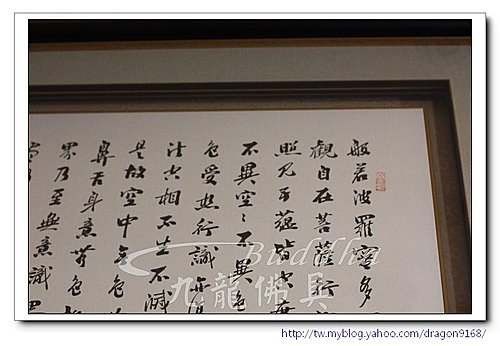 般若波羅蜜多
觀自在菩薩行
照見五蘊皆空度
不異空〻不異色
色受想行識亦復
法空相不生不滅
是故空中無色
鼻舌身意無色
界乃至無意識界
Buddha
九龍佛具
http://tw.myblog.yahoo.com/dragon9168/